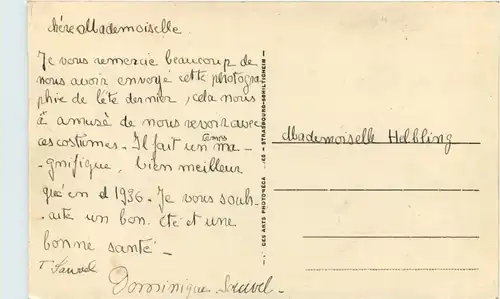 chère Mademoiselle.
Je vous remercie beaucoup de
nous avoir envoyé cette photogra
phie de l'été dernier, cela nous
a amusé de nous revoir avec
ces costumes. Il fait un temps ma
-gnifique, bien meilleur
qu'en 1936. Je vous souh-
aite un bon été et une
bonne santé.
Dominique
Mademoiselle Helbling
DES ARTS PHOTOMÉCA
ES - STRASBOURG-SCHILTIGHEIM -